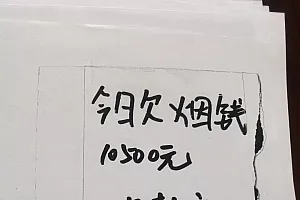 今日欠烟钱
10500元